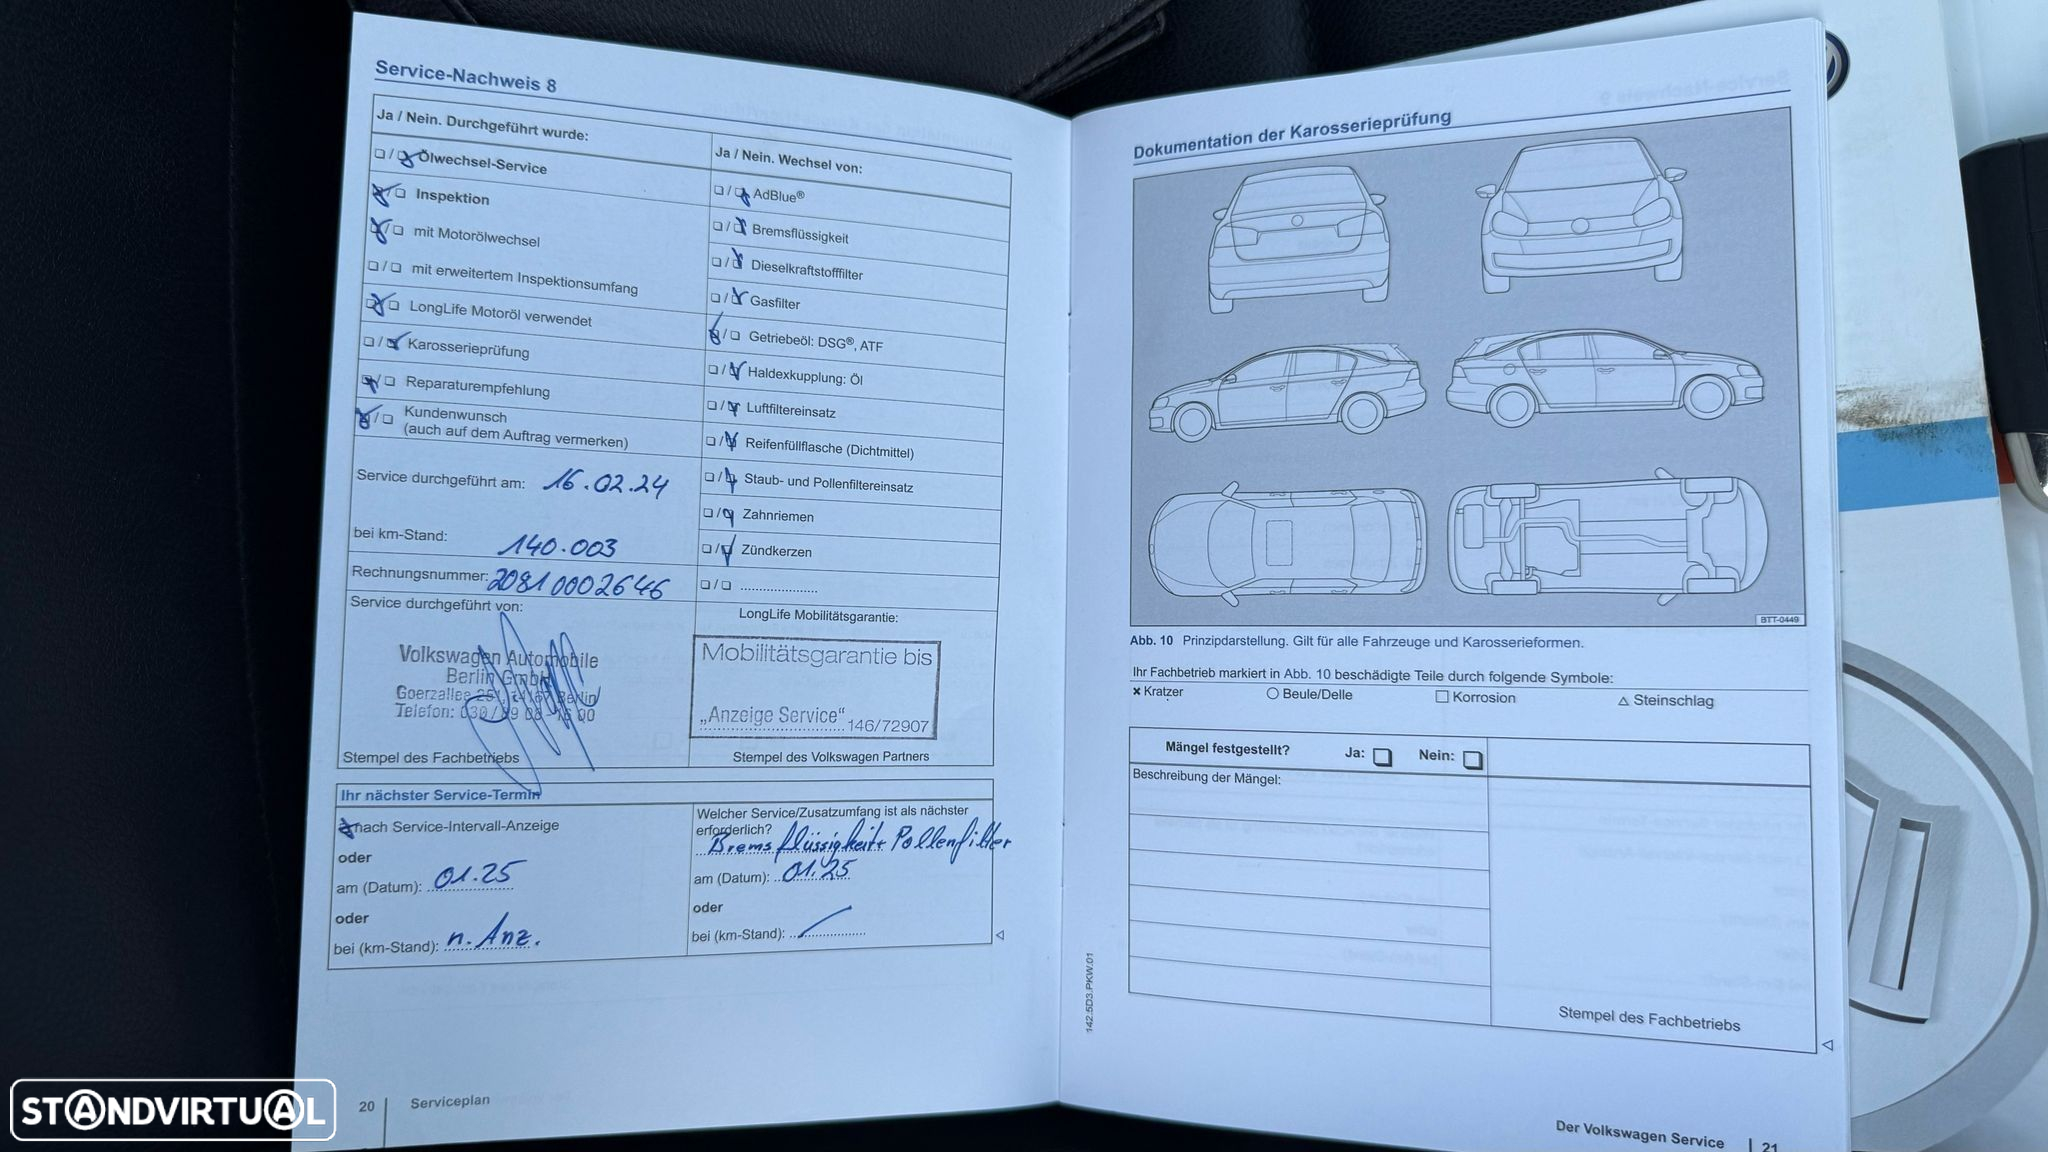 Service-Nachweis 8
Ja / Nein. Durchgeführt wurde:
❏ / ❏ Ölwechsel-Service
❏ / ❏ Inspektion
❏ / ❏ mit Motorölwechsel
❏ / ❏ mit erweitertem Inspektionsumfang
❏ / ❏ LongLife Motoröl verwendet
❏ / ❏ Karosserieprüfung
❏ / ❏ Reparaturempfehlung
❏ / ❏ Kundenwunsch
(auch auf dem Auftrag vermerken)
Service durchgeführt am: 16.02.24
bei km-Stand: 140.003
Rechnungsnummer: 20810002646
Service durchgeführt von:
Volkswagen Automobile
Berlin GmbH
Goerzallee 251, 14167 Berlin
Telefon: 030/89 08-16 00
Stempel des Fachbetriebs
Ja / Nein. Wechsel von:
❏ / ❏ AdBlue®
❏ / ❏ Bremsflüssigkeit
❏ / ❏ Dieselkraftstofffilter
❏ / ❏ Gasfilter
❏ / ❏ Getriebeöl: DSG®, ATF
❏ / ❏ Haldexkupplung: Öl
❏ / ❏ Luftfiltereinsatz
❏ / ❏ Reifenfüllflasche (Dichtmittel)
❏ / ❏ Staub- und Pollenfiltereinsatz
❏ / ❏ Zahnriemen
❏ / ❏ Zündkerzen
❏ / ❏ ......................
LongLife Mobilitätsgarantie:
Mobilitätsgarantie bis
„Anzeige Service" 146/72907
Stempel des Volkswagen Partners
Ihr nächster Service-Termin
nach Service-Intervall-Anzeige
oder
am (Datum): 01.25
oder
bei (km-Stand): n. Anz.
Welcher Service/Zusatzumfang ist als nächster
erforderlich?
Bremsflüssigkeit+ Pollenfilter
am (Datum): 01.25
oder
bei (km-Stand):
20 | Serviceplan
Dokumentation der Karosserieprüfung
BTT-0449
Abb. 10 Prinzipdarstellung. Gilt für alle Fahrzeuge und Karosserieformen.
Ihr Fachbetrieb markiert in Abb. 10 beschädigte Teile durch folgende Symbole:
× Kratzer ○ Beule/Delle □ Korrosion △ Steinschlag
Mängel festgestellt? Ja: ❏ Nein: ❏
Beschreibung der Mängel:
Stempel des Fachbetriebs
142.5D3.PKW.01
Der Volkswagen Service | 21
STANDVIRTUAL